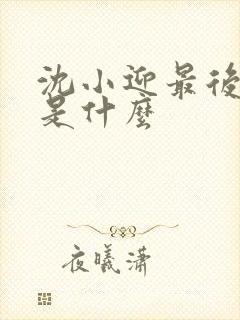 沈小迎最後
是什麼
夜曦瀟